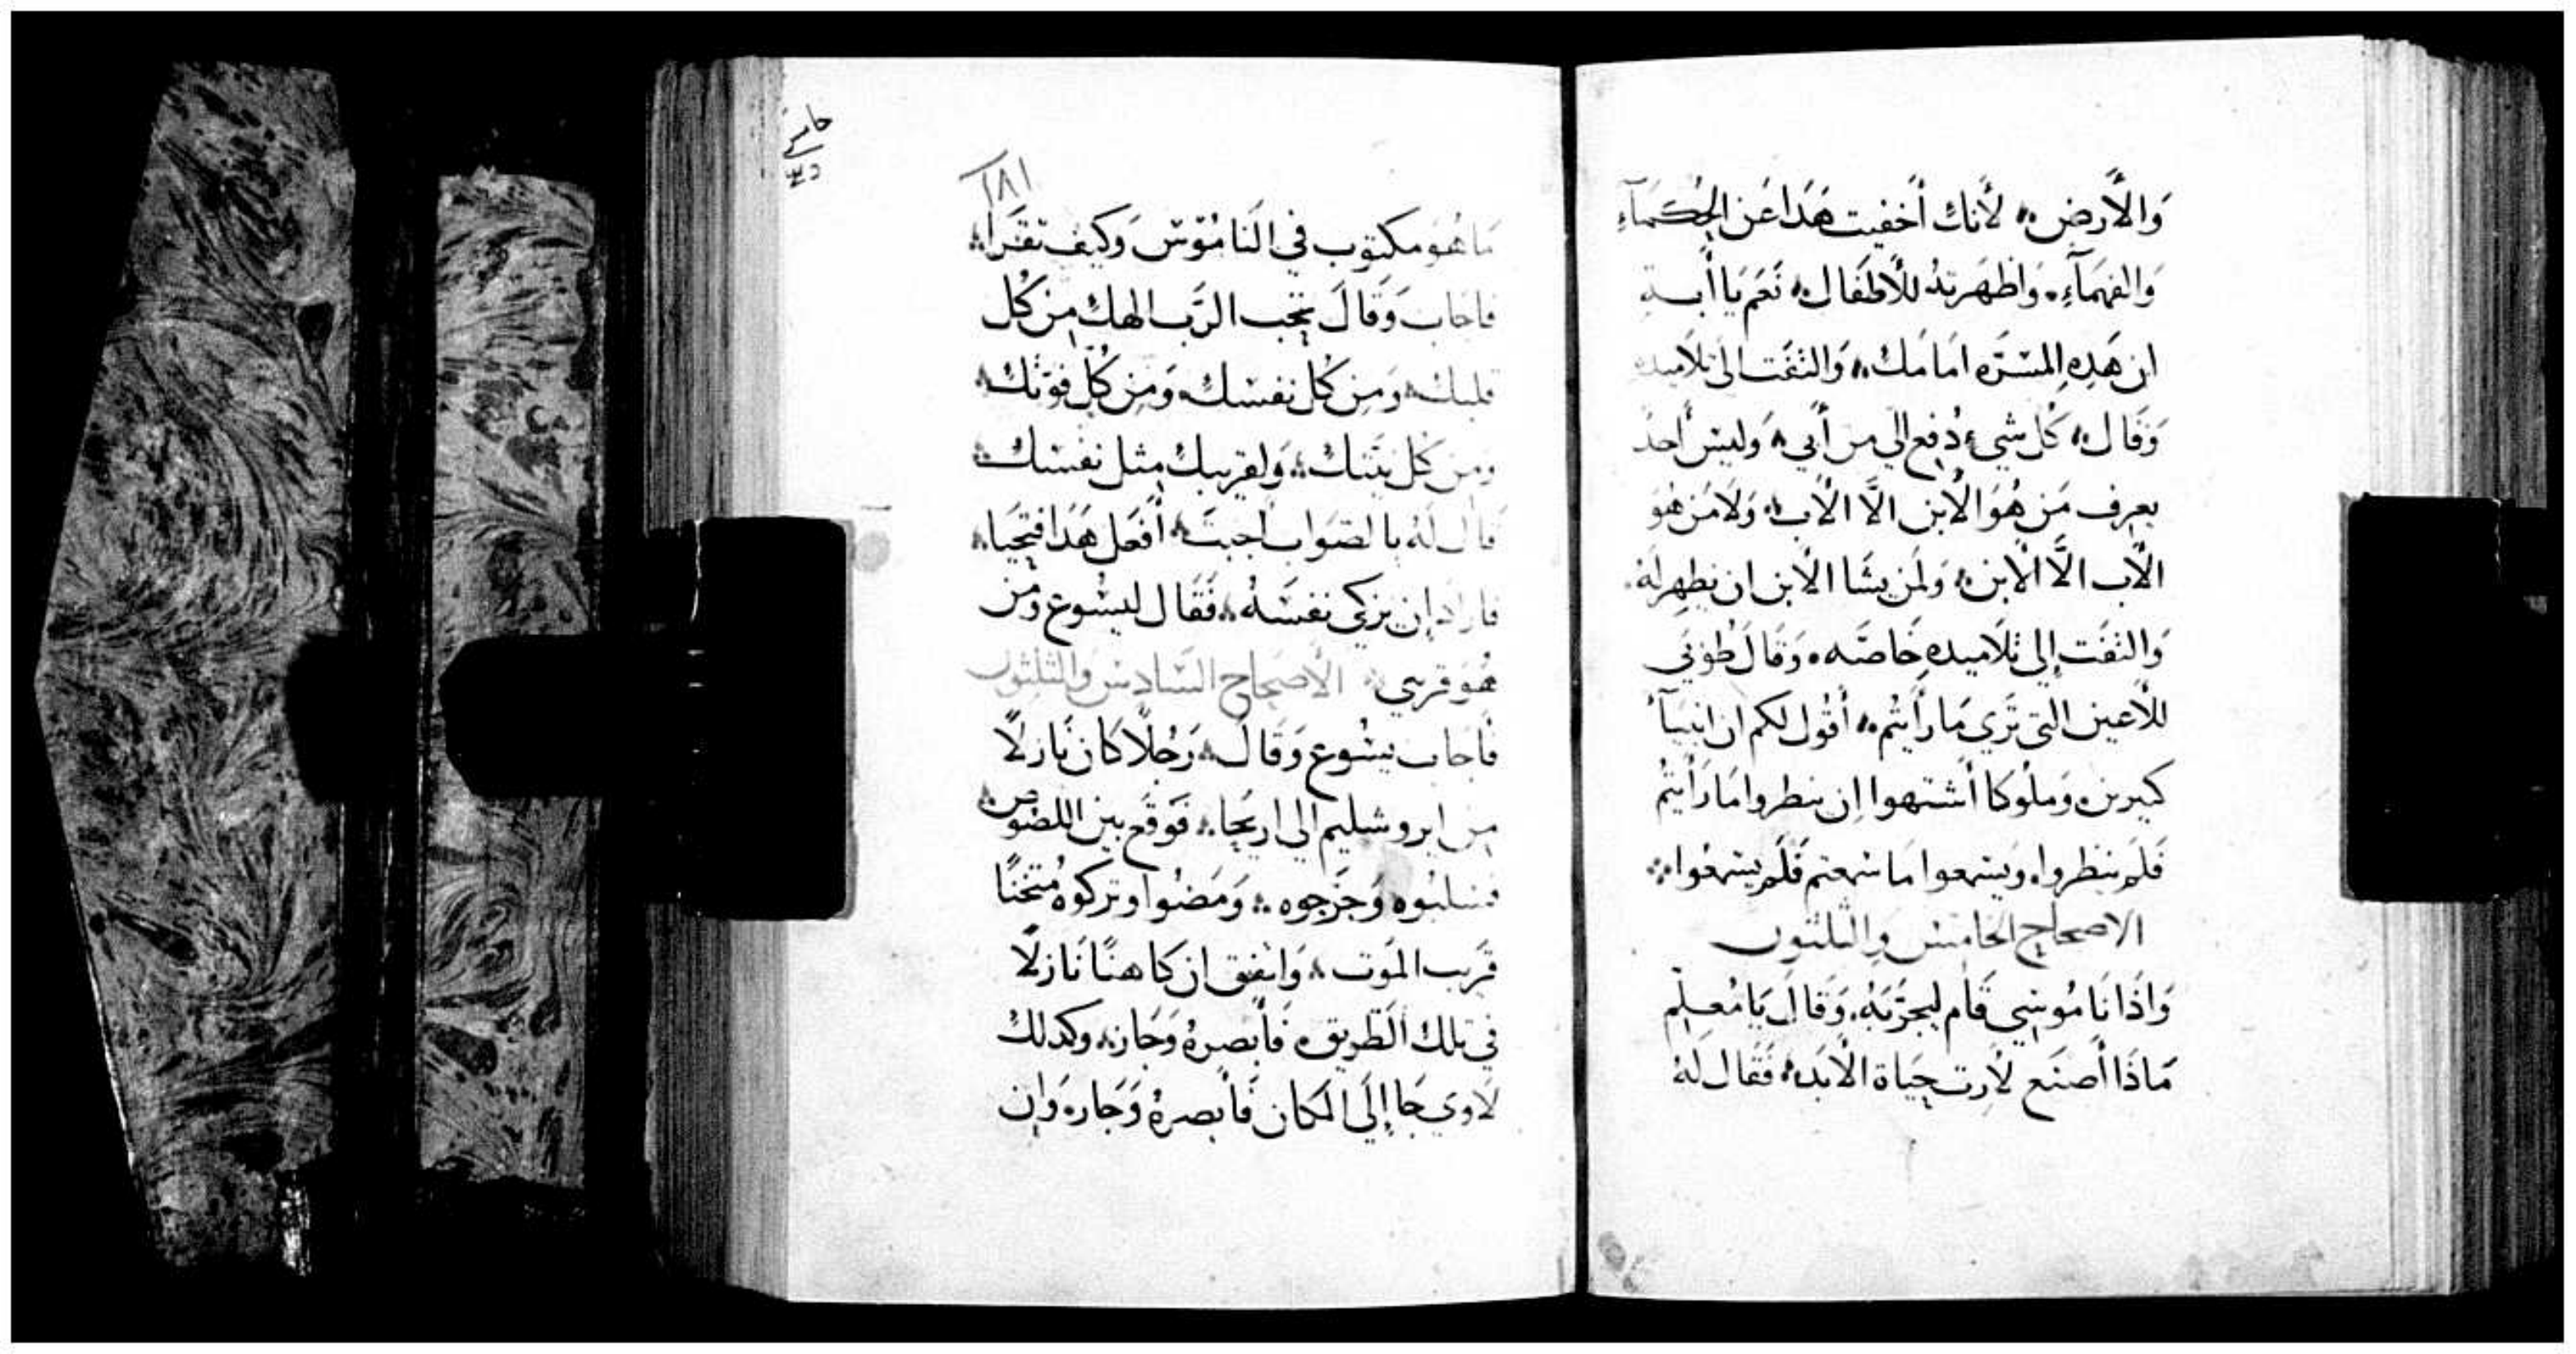 وَالأَرض؞ لأَنك أَخفيت هَدَا عَن الحُكمَآءِ
وَالفهمَآءِ. وَاظهَرتهُ للأَطفَال؞ نَعَم يَا أَبــهِ
ان هَدِهِ المسَرَه امَامَك؞ وَالتفَت الىَ تلاَميدهِ
وَقَال؞ كُل شيء دُفع اليَ من أَبي؞ وَليسَ أَحدٌ
يعرِف مَن هُوَ الأبن الاَّ الأَب؞ وَلاَ مَن هُوَ
الأَب الاَّ الأبن؞ وَلمَن يشَا الأبن ان يظهِر لهُ.
وَالتفَت إِلى تلاَميده خَاصَه. وَقَالَ طُوبَي
للأَعين التى تَرَي مَا رَأَيتُم؞ أَقُول لكم ان انبيَآءُ
كتيرين. وَملُوكا أَشتهوا ان ينظروا مَا رَأَيتُم
فَلَم ينظروا. وَيسَمعوا مَا سَمعتم فَلَم يسَمعُوا؞
الاصحاح الخامسَ والتلتون
وَاذَا نَامُوسِي قَام ليجرَبَهُ. وَقَالَ يَا مُعَـلِم
مَاذَا أَصنَع لأَرِت حيَاة الأَبَد؞ فَقَال لَهُ
١٨١
مَا هُوَ مكتوب في النَامُوسَ وَكيفَ تقرَا؞
فاجَاب وَقَالَ تحِب الرَب الهك مِن كُل
قلبك؞ وَمِن كُل نفسَك. وَمِن كُل قوَتك؞
ومن كُل نيَتك؞ وَلقريبك مِثل نفسَك؞
قَال لَهُ بالصَوَاب اجبتَ؞ أَفعَل هَدَا فتحيَا؞
فارَاد ان يزكى نفسَهُ؞ فَقَال ليسُوع وَمَن
هُوَ قريبي؞ الأصحَاح السَادسَ والتلتون
فَأجَاب يسُوع وَقَال؞ رَجُلاً كَان نَازلاً
مِن ايروشليم الى اريحَا؞ فَوَقَع بين اللصُوص؞
فسَلبُوه وَجَرجوه؞ وَمَضُوا وتركوهُ مُتخنًا
قَريب المَوت؞ وَاتفق ان كَاهنًا نَازلاً
في تلك الطَريق. فَأَبصرهُ وَجَاز؞ وكدلك
لاَوي جَا إِلَى المكَان فَأَبصرهُ وَجَاز. وَان